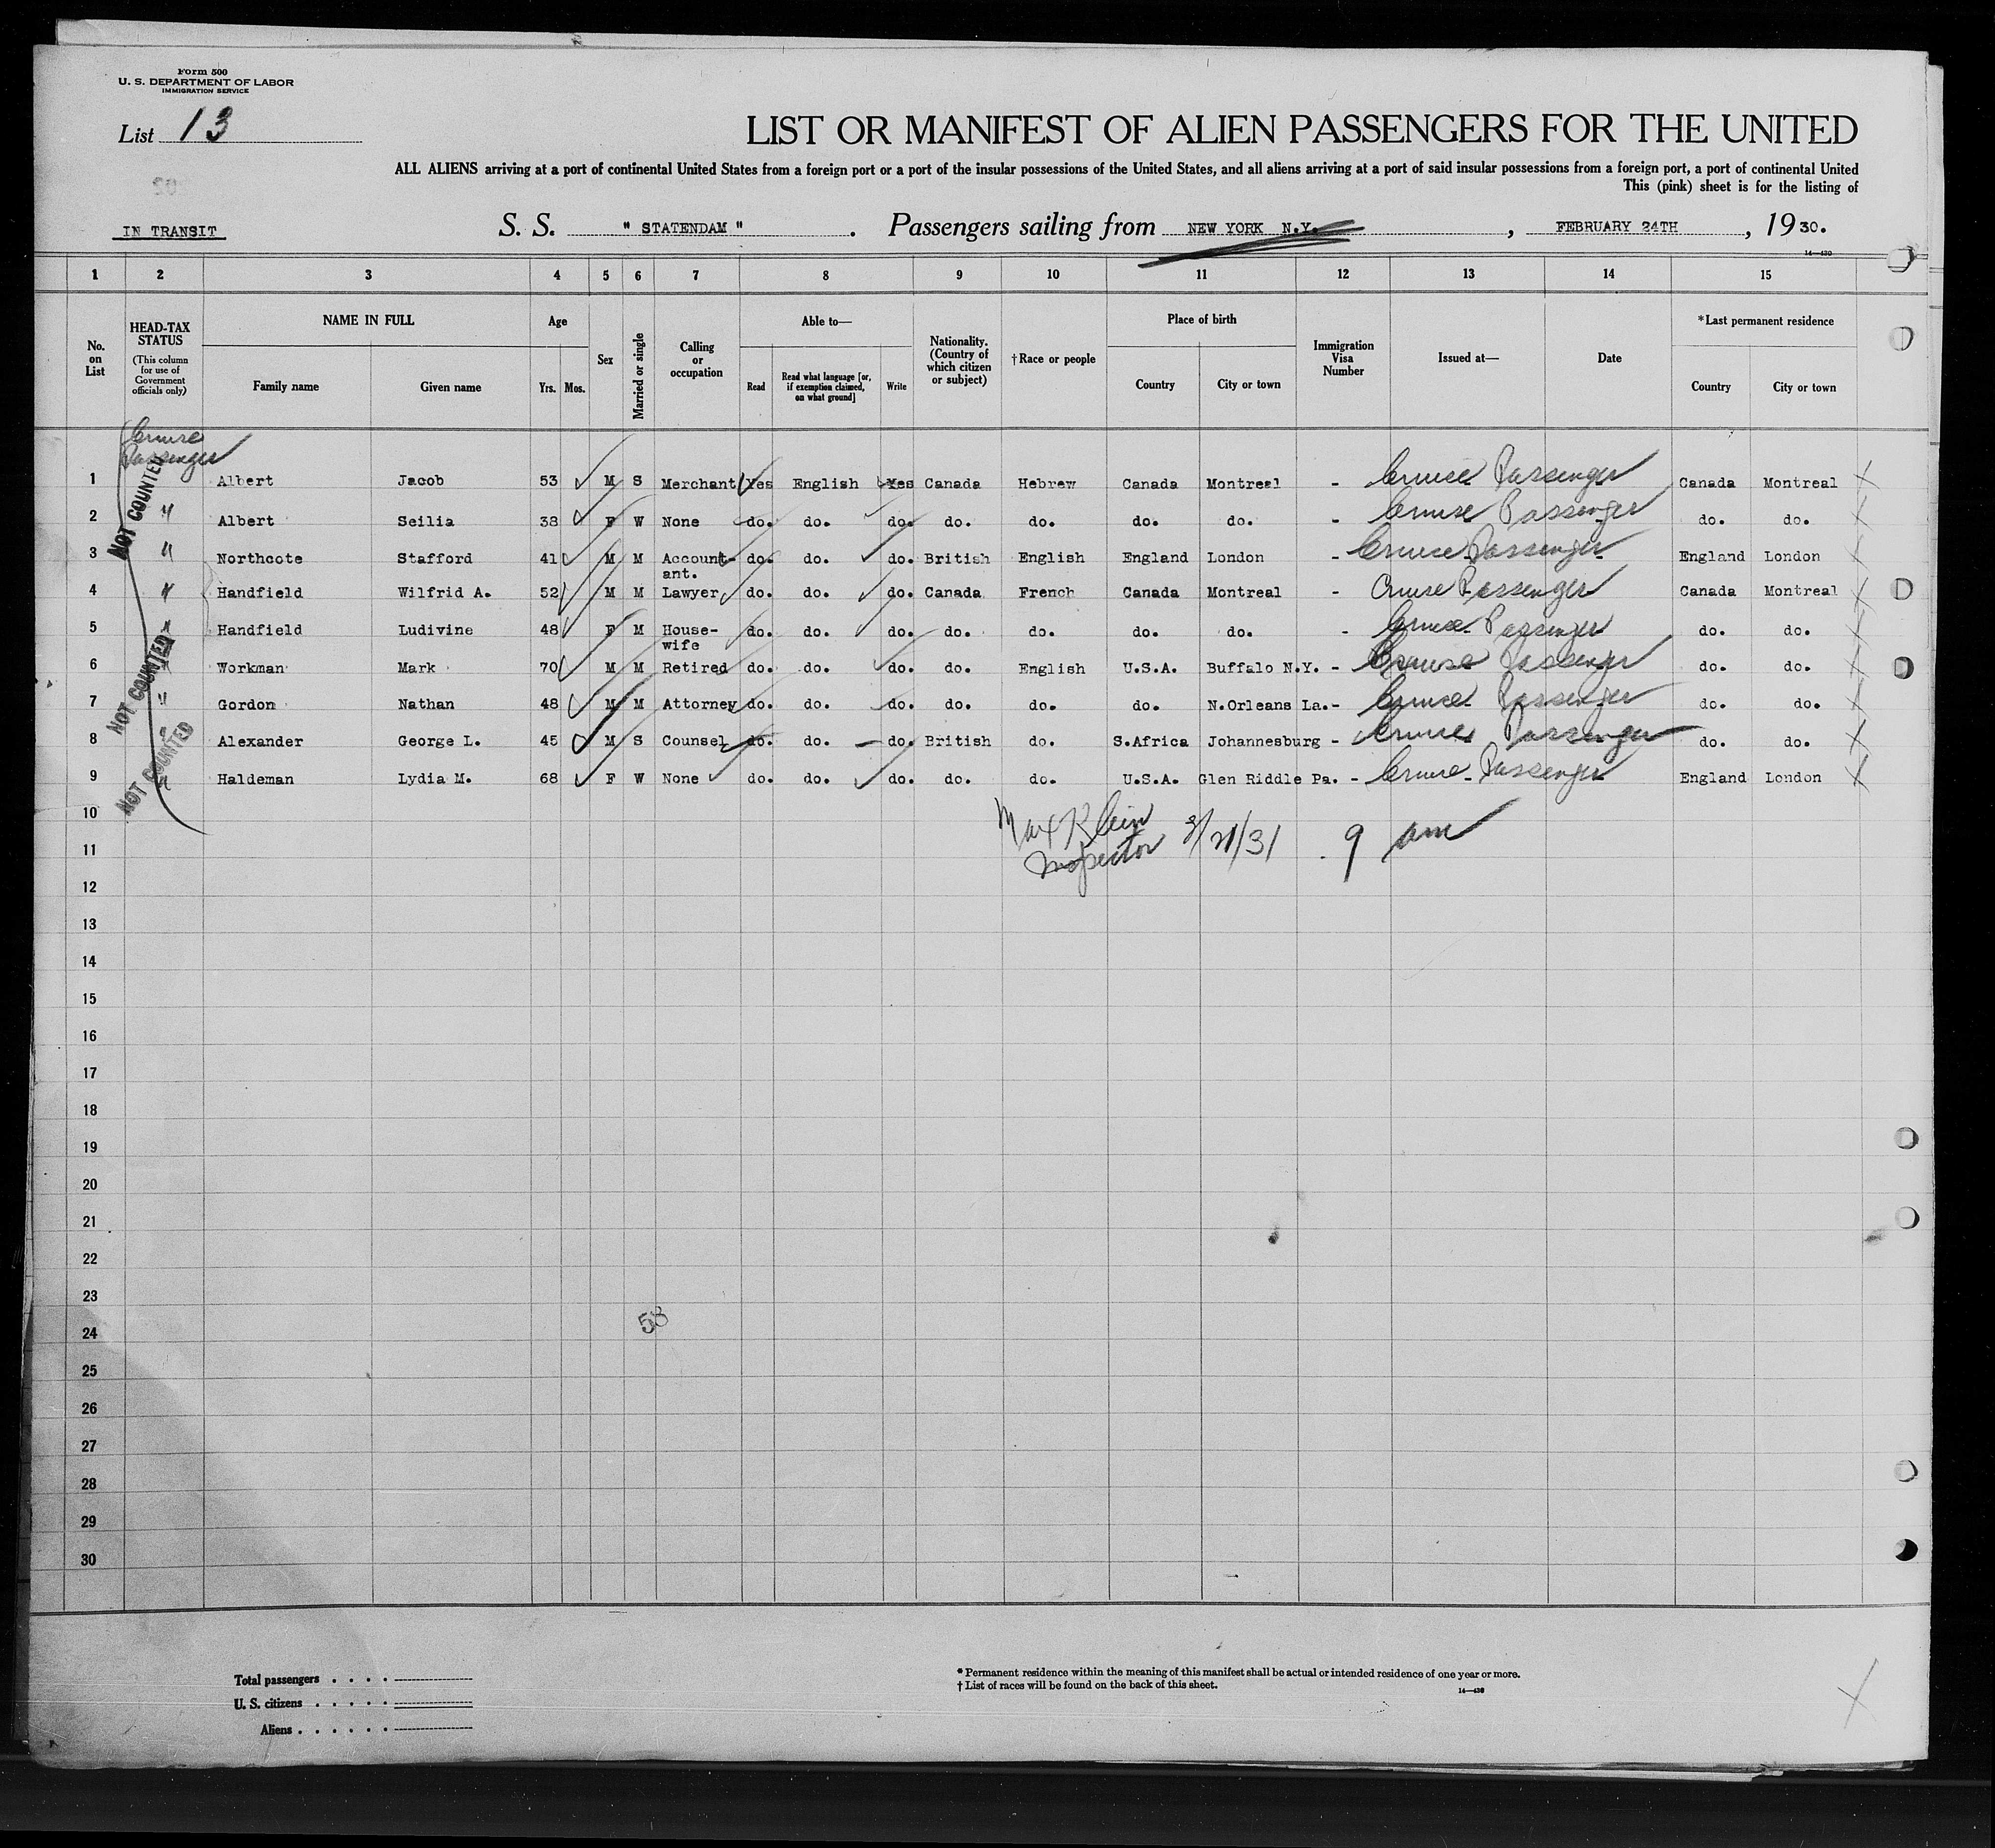 Form 500
U. S. DEPARTMENT OF LABOR
IMMIGRATION SERVICE
List 13
LIST OR MANIFEST OF ALIEN PASSENGERS FOR THE UNITED
ALL ALIENS arriving at a port of continental United States from a foreign port or a port of the insular possessions of the United States, and all aliens arriving at a port of said insular possessions from a foreign port, a port of continental United
This (pink) sheet is for the listing of
IN TRANSIT S. S. " STATENDAM " . Passengers sailing from NEW YORK N.Y. , FEBRUARY 24TH , 1930.
14—430
1 2 3 4 5 6 7 8 9 10 11 12 13 14 15
No. on List
HEAD-TAX STATUS (This column for use of Government officials only)
NAME IN FULL Family name Given name
Age Yrs. Mos.
Sex
Married or single
Calling or occupation
Able to— Read Read what language [or, if exemption claimed, on what ground] Write
Nationality. (Country of which citizen or subject)
†Race or people
Place of birth Country City or town
Immigration Visa Number
Issued at—
Date
*Last permanent residence Country City or town
Cruise
Passenger
1 Albert Jacob 53 M S Merchant Yes English Yes Canada Hebrew Canada Montreal - Cruise Passenger Canada Montreal
2 " Albert Seilia 38 F W None do. do. do. do. do. do. do. - Cruise Passenger do. do.
3 " Northcote Stafford 41 M M Account-ant. do. do. do. British English England London - Cruise Passenger England London
4 " Handfield Wilfrid A. 52 M M Lawyer do. do. do. Canada French Canada Montreal - Cruise Passenger Canada Montreal
5 " Handfield Ludivine 48 F M House-wife do. do. do. do. do. do. do. - Cruise Passenger do. do.
6 " Workman Mark 70 M M Retired do. do. do. do. English U.S.A. Buffalo N.Y. - Cruise Passenger do. do.
7 " Gordon Nathan 48 M M Attorney do. do. do. do. do. do. N.Orleans La.- Cruise Passenger do. do.
8 " Alexander George L. 45 M S Counsel do. do. do. British do. S.Africa Johannesburg - Cruise Passenger do. do.
9 " Haldeman Lydia M. 68 F W None do. do. do. do. do. U.S.A. Glen Riddle Pa. - Cruise Passenger England London
NOT COUNTED
NOT COUNTED
NOT COUNTED
10
Max Klein
11
Inspector 3/21/31 9 am
12
13
14
15
16
17
18
19
20
21
22
23
58
24
25
26
27
28
29
30
Total passengers
U. S. citizens
Aliens
* Permanent residence within the meaning of this manifest shall be actual or intended residence of one year or more.
† List of races will be found on the back of this sheet.
14—430